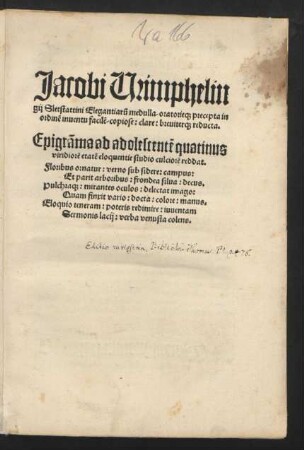 Jacobi Uimpheling
gij Sletstattini Elegantiarū medulla: oratorieqꝫ precepta in
ordinē inuentu facilē: copiose: clare: breuiterqꝫ reducta.
Epigrāma ad adolescentē quatinus
viridiorē etatē eloquentie studio culciorē reddat.
Floribus ornatur: verno sub sidere: campus:
Et parit arboribus: frondea silua: decus.
Pulchraqꝫ: mirantes oculos: delectat imago:
Quam finxit vario: docta: colore: manus.
Eloquio teneram: poteris redimire: iuuentam
Sermonis lacij: verba venusta colens.
Editio rarissima,